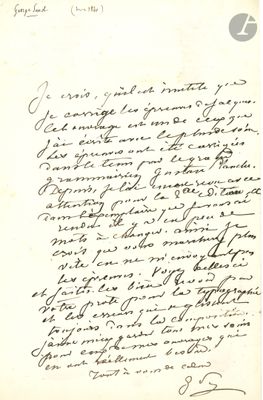 George Sand (mars 1860)
Je crois, qu'il est inutile que
je corrige les épreuves de Jacques.
Cet ouvrage est un de ceux que
j'ai écrits avec le plus de soin.
Les épreuves ont été corrigées
dans le tems par le grand
grammairien Gustave Planche.
Depuis, je l'ai revu avec
attention pour la 2me édition
dans l'exemplaire
rendu et il n'y a peu de
mots à changer. Ainsi je
crois que vous marcherez plus
vite en ne m'envoyant pas
les épreuves. Voyez celles ci
et faites les bien revoir par
votre prote pour la typographie
et les erreurs qui se glissent
toujours dans la composition.
J'aime mieux garder tous mes soins
pour certains ouvrages qui
en ont réellement besoin.
Tout à vous de cœur
G. S